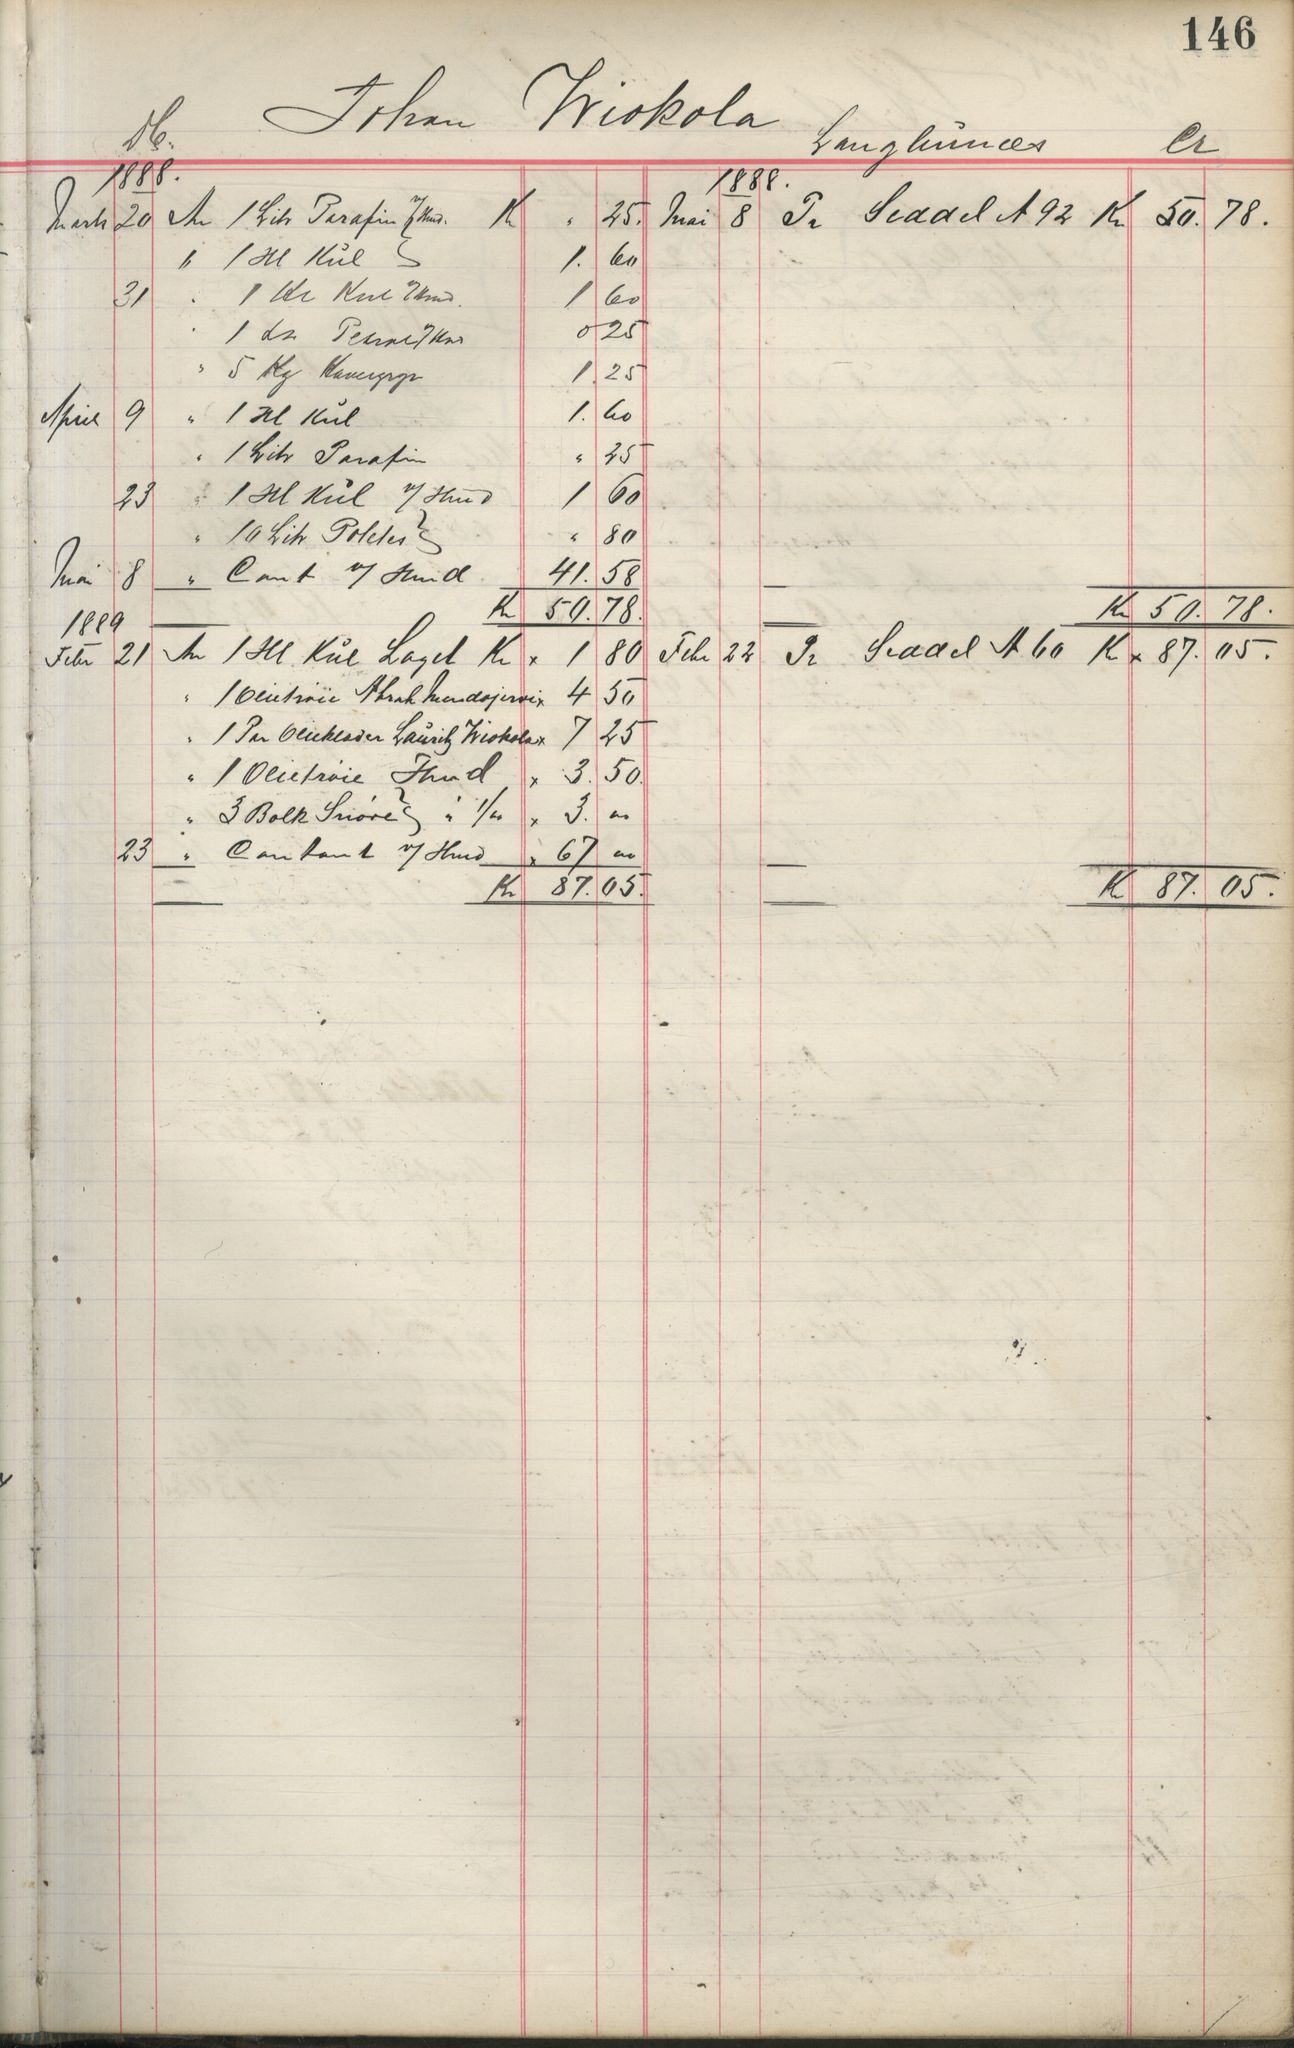 146
Johan Wiokola
Db. Langbunæs Cr
1888. 1888.
Marts 20 An 1 Litr Parafin v/ Hus. Kr " 25. Mai 8 Pr Seddel A 92 Kr 50. 78.
" 1 Hl Kul 1. 60
31 " 1 Hl Kul v/ Hus. 1 60
" 1 Ltr 0 25
" 5 Kg 1. 25
April 9 " 1 Hl Kul 1. 60
" 1 Litr Parafin " 25
23 " 1 Hl Kul v/ Hust 1 60
" 10 Litr Potetes " 80
Mai 8 " Cont v/ Hust 41. 58
Kr 50. 78. Kr 50. 78.
1889
Febr 21 An 1 Hl Kul Laget Kr x 1 80 Febr 22 Pr Seddel A 60 Kr x 87. 05.
" 1 Olietrøie Abrah x 4 50
" 1 Par Olieklæder Lauritz Wiokola x 7 25
" 1 Olietrøie x 3. 50.
" 3 Bolk Snøre " 1/00 x 3. 00
23 " Contant v/ x 67 00
Kr 87. 05. Kr 87. 05.